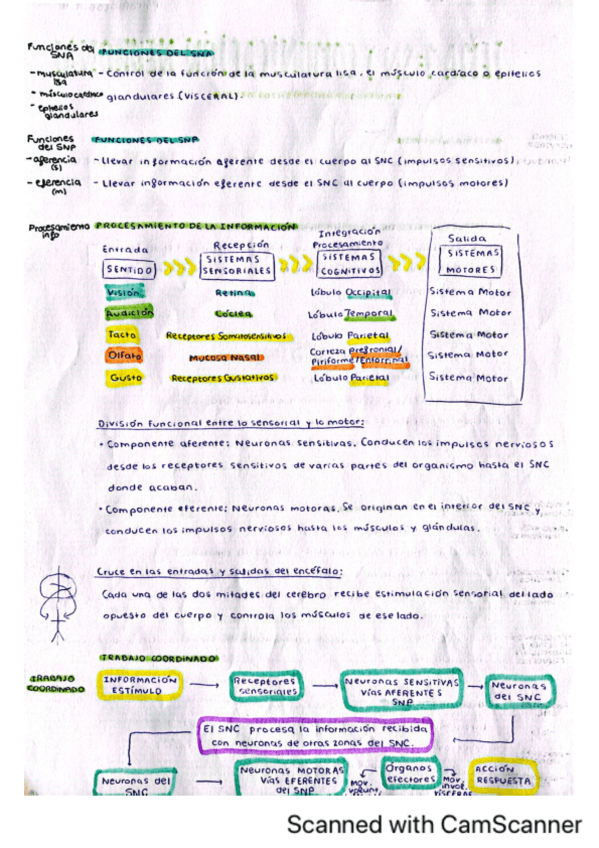 Funciones del SNA
FUNCIONES DEL SNA
- musculatura lisa
- Control de la función de la musculatura lisa, el músculo cardíaco o epitelios
- músculo cardíaco
glandulares (VISCERAL).
- epitelios glandulares
Funciones del SNP
FUNCIONES DEL SNP
- aferencia (s)
- Llevar información aferente desde el cuerpo al SNC (impulsos sensitivos).
- eferencia (m)
- Llevar información eferente desde el SNC al cuerpo (impulsos motores)
Procesamiento info
PROCESAMIENTO DE LA INFORMACIÓN
Entrada
Recepción
Integración Procesamiento
Salida
SENTIDO
SISTEMAS SENSORIALES
SISTEMAS COGNITIVOS
SISTEMAS MOTORES
Visión Retina Lóbulo Occipital Sistema Motor
Audición Cóclea Lóbulo Temporal Sistema Motor
Tacto Receptores Somatosensitivos Lóbulo Parietal Sistema Motor
Olfato Mucosa Nasal Corteza Prefrontal/ Piriforme/Entorrinal Sistema Motor
Gusto Receptores Gustativos Lóbulo Parietal Sistema Motor
División funcional entre lo sensorial y lo motor:
• Componente aferente: Neuronas sensitivas. Conducen los impulsos nerviosos
desde los receptores sensitivos de varias partes del organismo hasta el SNC
donde acaban.
• Componente eferente: Neuronas motoras. Se originan en el interior del SNC y
conducen los impulsos nerviosos hasta los músculos y glándulas.
Cruce en las entradas y salidas del encéfalo:
Cada una de las dos mitades del cerebro recibe estimulación sensorial del lado
opuesto del cuerpo y controla los músculos de ese lado.
TRABAJO COORDINADO
TRABAJO COORDINADO
INFORMACIÓN ESTÍMULO
Receptores sensoriales
Neuronas SENSITIVAS Vías AFERENTES SNP
Neuronas del SNC
El SNC procesa la información recibida
con neuronas de otras zonas del SNC.
Neuronas del SNC
Neuronas MOTORAS Vías EFERENTES del SNP
Mov. volunt.
Órganos efectores
Mov. invol. VISCERAL
ACCIÓN RESPUESTA
Scanned with CamScanner